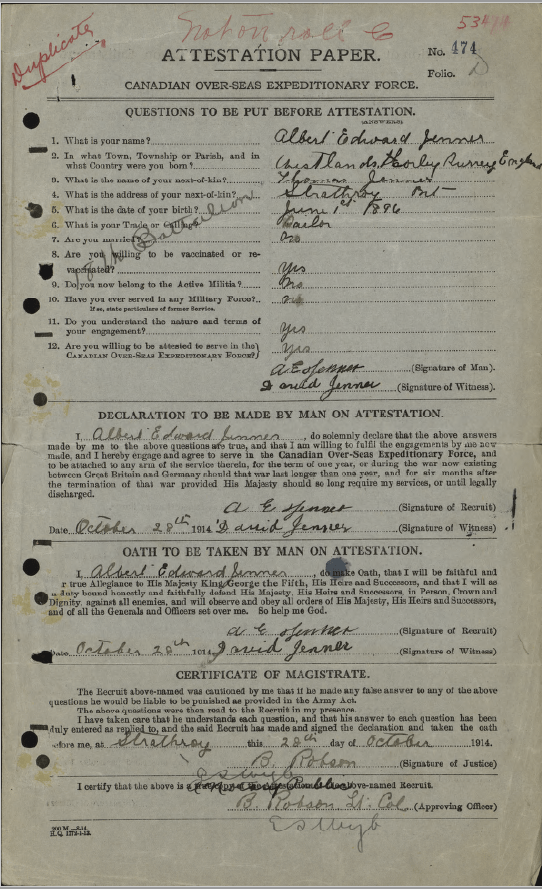 Not on roll C
Duplicate
ATTESTATION PAPER.
No. 474
Folio.
CANADIAN OVER-SEAS EXPEDITIONARY FORCE.
QUESTIONS TO BE PUT BEFORE ATTESTATION.
(ANSWERS)
1. What is your name? Albert Edward Jenner
2. In what Town, Township or Parish, and in what Country were you born? Horley Surrey England
3. What is the name of your next-of-kin? Thomas Jenner
4. What is the address of your next-of-kin? Strathroy Ont
5. What is the date of your birth? June 1st 1896
6. What is your Trade or Calling? Tailor
7. Are you married? no
8. Are you willing to be vaccinated or re-vaccinated? Yes
9. Do you now belong to the Active Militia? No
10. Have you ever served in any Military Force? no
If so, state particulars of former Service.
11. Do you understand the nature and terms of your engagement? Yes
12. Are you willing to be attested to serve in the CANADIAN OVER-SEAS EXPEDITIONARY FORCE? Yes
18th Battalion
A E Jenner (Signature of Man).
David Jenner (Signature of Witness).
DECLARATION TO BE MADE BY MAN ON ATTESTATION.
I, Albert Edward Jenner, do solemnly declare that the above answers
made by me to the above questions are true, and that I am willing to fulfil the engagements by me now
made, and I hereby engage and agree to serve in the Canadian Over-Seas Expeditionary Force, and
to be attached to any arm of the service therein, for the term of one year, or during the war now existing
between Great Britain and Germany should that war last longer than one year, and for six months after
the termination of that war provided His Majesty should so long require my services, or until legally
discharged.
A E Jenner (Signature of Recruit)
Date October 28th 1914. David Jenner (Signature of Witness)
OATH TO BE TAKEN BY MAN ON ATTESTATION.
I, Albert Edward Jenner, do make Oath, that I will be faithful and
r true Allegiance to His Majesty King George the Fifth, His Heirs and Successors, and that I will as
duty bound honestly and faithfully defend His Majesty, His Heirs and Successors, in Person, Crown and
Dignity, against all enemies, and will observe and obey all orders of His Majesty, His Heirs and Successors,
and of all the Generals and Officers set over me. So help me God.
A E Jenner (Signature of Recruit)
Date October 28th 1914. David Jenner (Signature of Witness)
CERTIFICATE OF MAGISTRATE.
The Recruit above-named was cautioned by me that if he made any false answer to any of the above
questions he would be liable to be punished as provided in the Army Act.
The above questions were then read to the Recruit in my presence.
I have taken care that he understands each question, and that his answer to each question has been
duly entered as replied to, and the said Recruit has made and signed the declaration and taken the oath
before me, at Strathroy this 28th day of October 1914.
B. Robson (Signature of Justice)
I certify that the above is a true copy of the Attestation of the above-named Recruit.
B. Robson Lt. Col (Approving Officer)
H.Q. 1772-1-13.